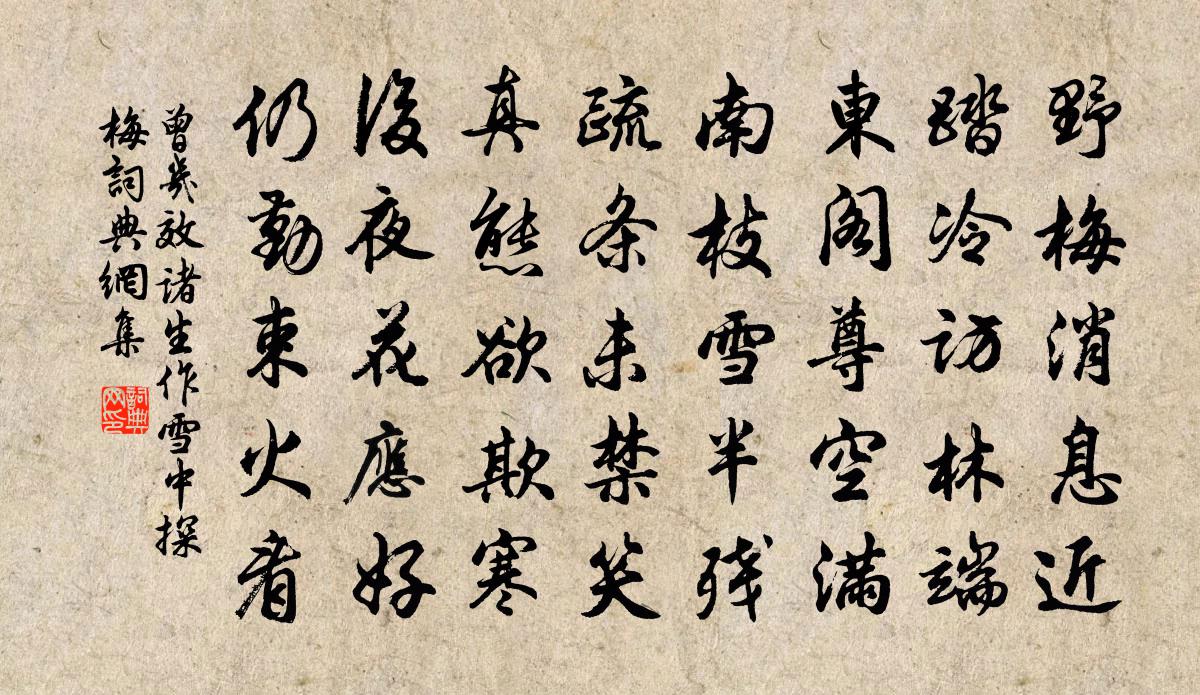 野梅消息近
踏冷訪林端
東閣尊空滿
南枝雪半残
疏条未禁笑
真態欲欺寒
後夜花應好
仍勤束火看
曾幾效诸生作雪中探
梅詞典網集
詞典网印